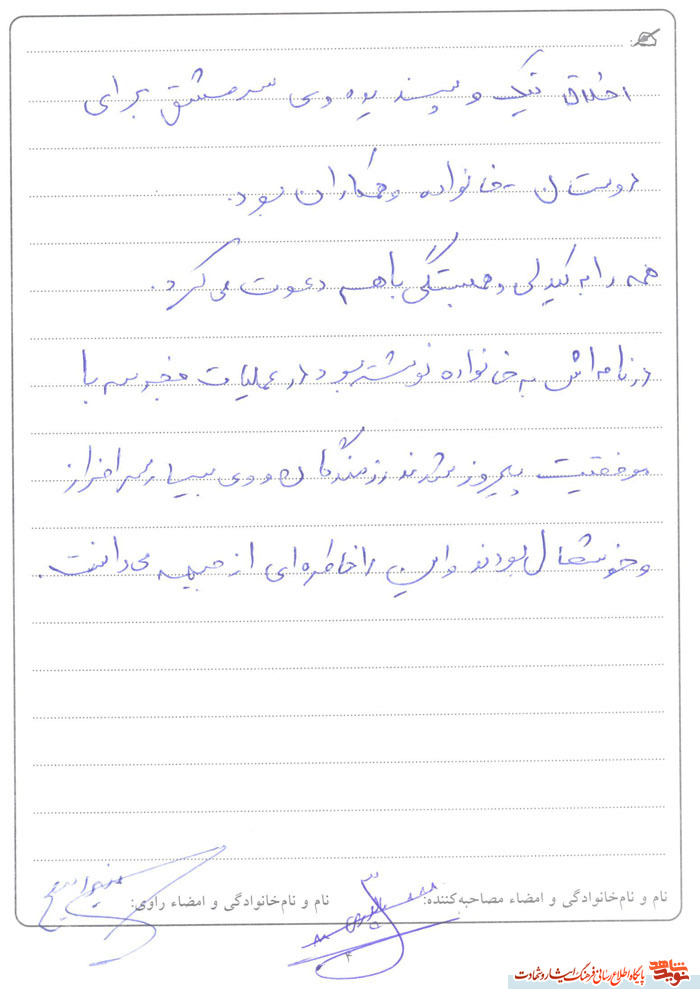 اخلاق نیک و پسندیده وی سرمشق برای
دوستان خانواده و همکاران بود.
همه را به یکدلی و همبستگی باهم دعوت می کرد.
در نامه اش به خانواده نوشته بود در عملیات با
موفقیت پیروز شدند رزمندگان و وی بسیار سرافراز
و خوشحال بودند و این را خاطره ای از جبهه می دانست.
نام و نام‌خانوادگی و امضاء مصاحبه‌کننده:
نام و نام‌خانوادگی و امضاء راوی:
نوید شاهد
پایگاه اطلاع رسانی فرهنگ ایثار و شهادت